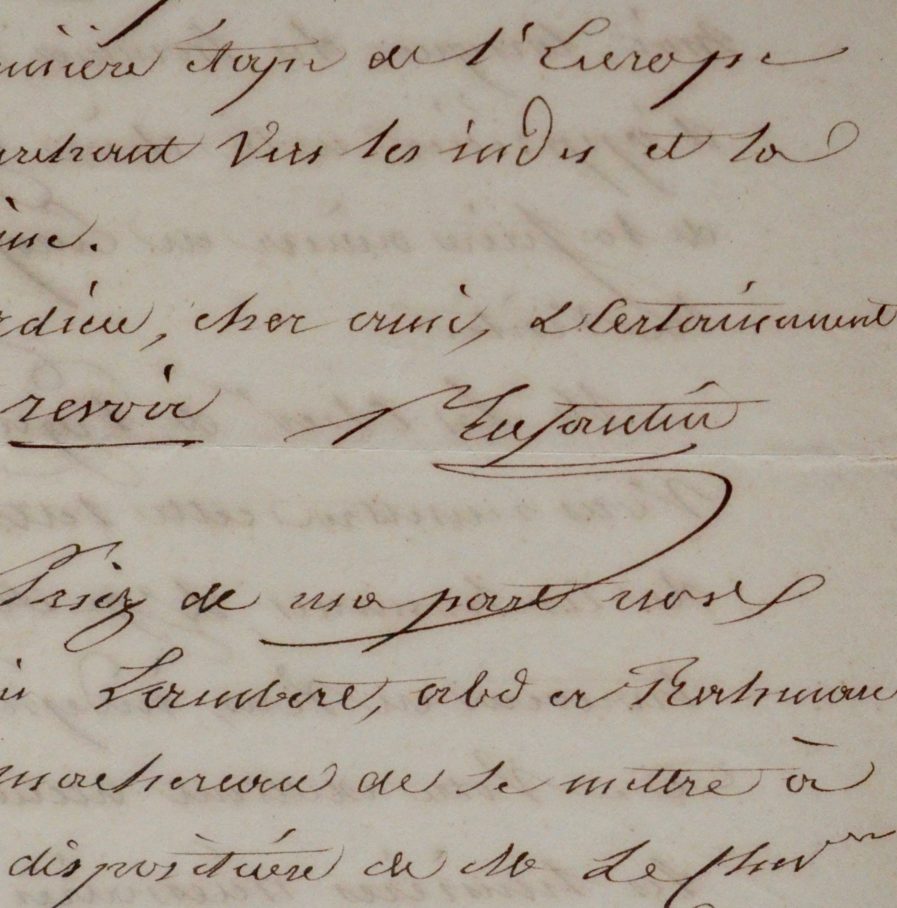 étape de l'Europe
marchant Vers les indes et la
ine.
adieu, cher ami, & Certainement
revoir Enfantin
Priez de ma part nos
Lambert, abd er Rahman
machereau de se mettre à
disposition de M Le Chevr